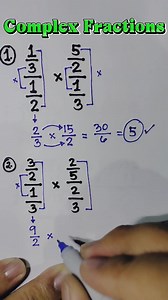 Complex Fractions
① (1/3)/(1/2) × (5/2)/(1/3)
2/3 × 15/2 = 30/6 = 5 ✓
② (3/2)/(1/3) × (2/5)/(2/3)
9/2 ×